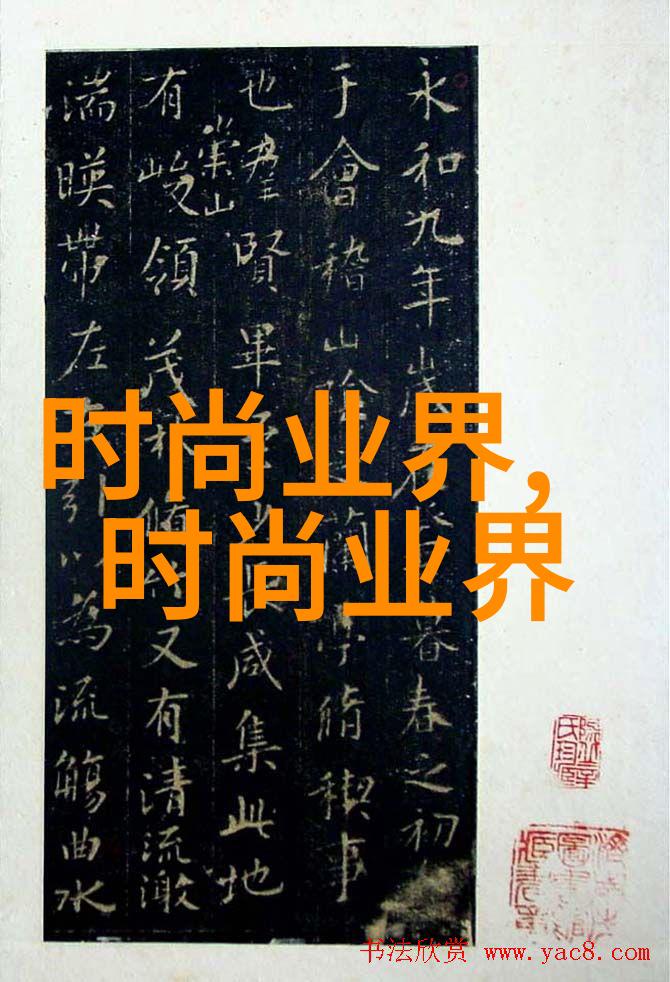 永和九年歲在癸暮春之初
于會稽山陰蘭亭脩禊事
也羣賢畢至少長咸集此地
有崇山峻領茂林脩竹又有清流激
湍暎帶左右引以為流觴曲水
时尚业界,
时尚业界
书法欣赏 www.yac8.com